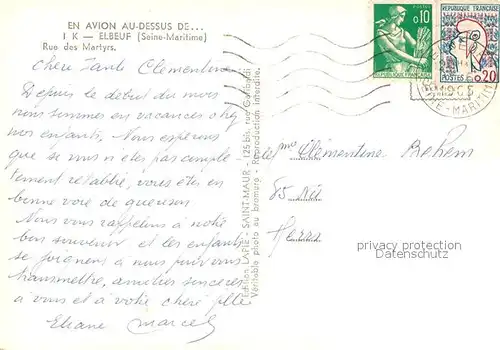 EN AVION AU-DESSUS DE...
1 K — ELBEUF (Seine-Maritime)
Rue des Martyrs.
chère Tante Clémentine
Depuis le début du mois
nous sommes en vacances chez
mes enfants. Nous espérons
que si vous n'êtes pas complè-
tement rétablie, vous êtes en
bonne voie de guérison
Nous vous rappelons à votre
bon souvenir et les enfants
se joignent à nous pour vous
transmettre, amitiés sincères
à vous et à votre chère fille
Eliane Marcel
Edition LAPIE - SAINT-MAUR - 125 bis, rue Garibaldi
Véritable photo au bromure - Reproduction interdite.
0,10
REPUBLIQUE FRANÇAISE
REPUBLIQUE FRANÇAISE
POSTES 0,20
1965
SEINE-MARITIME
Clémentine
85
privacy protection
Datenschutz